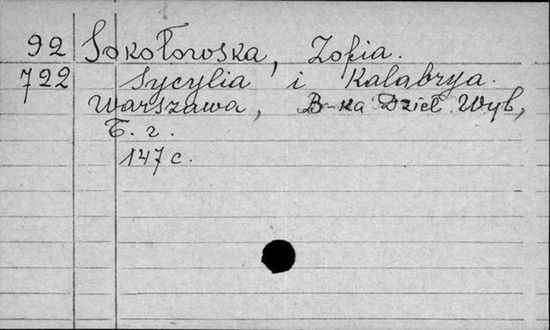 92 Sokołowska, Zofia.
722 Sycylia i Kalabrya.
Warszawa, B-ka Dzieł Wyb,
Б. г.
147 с.